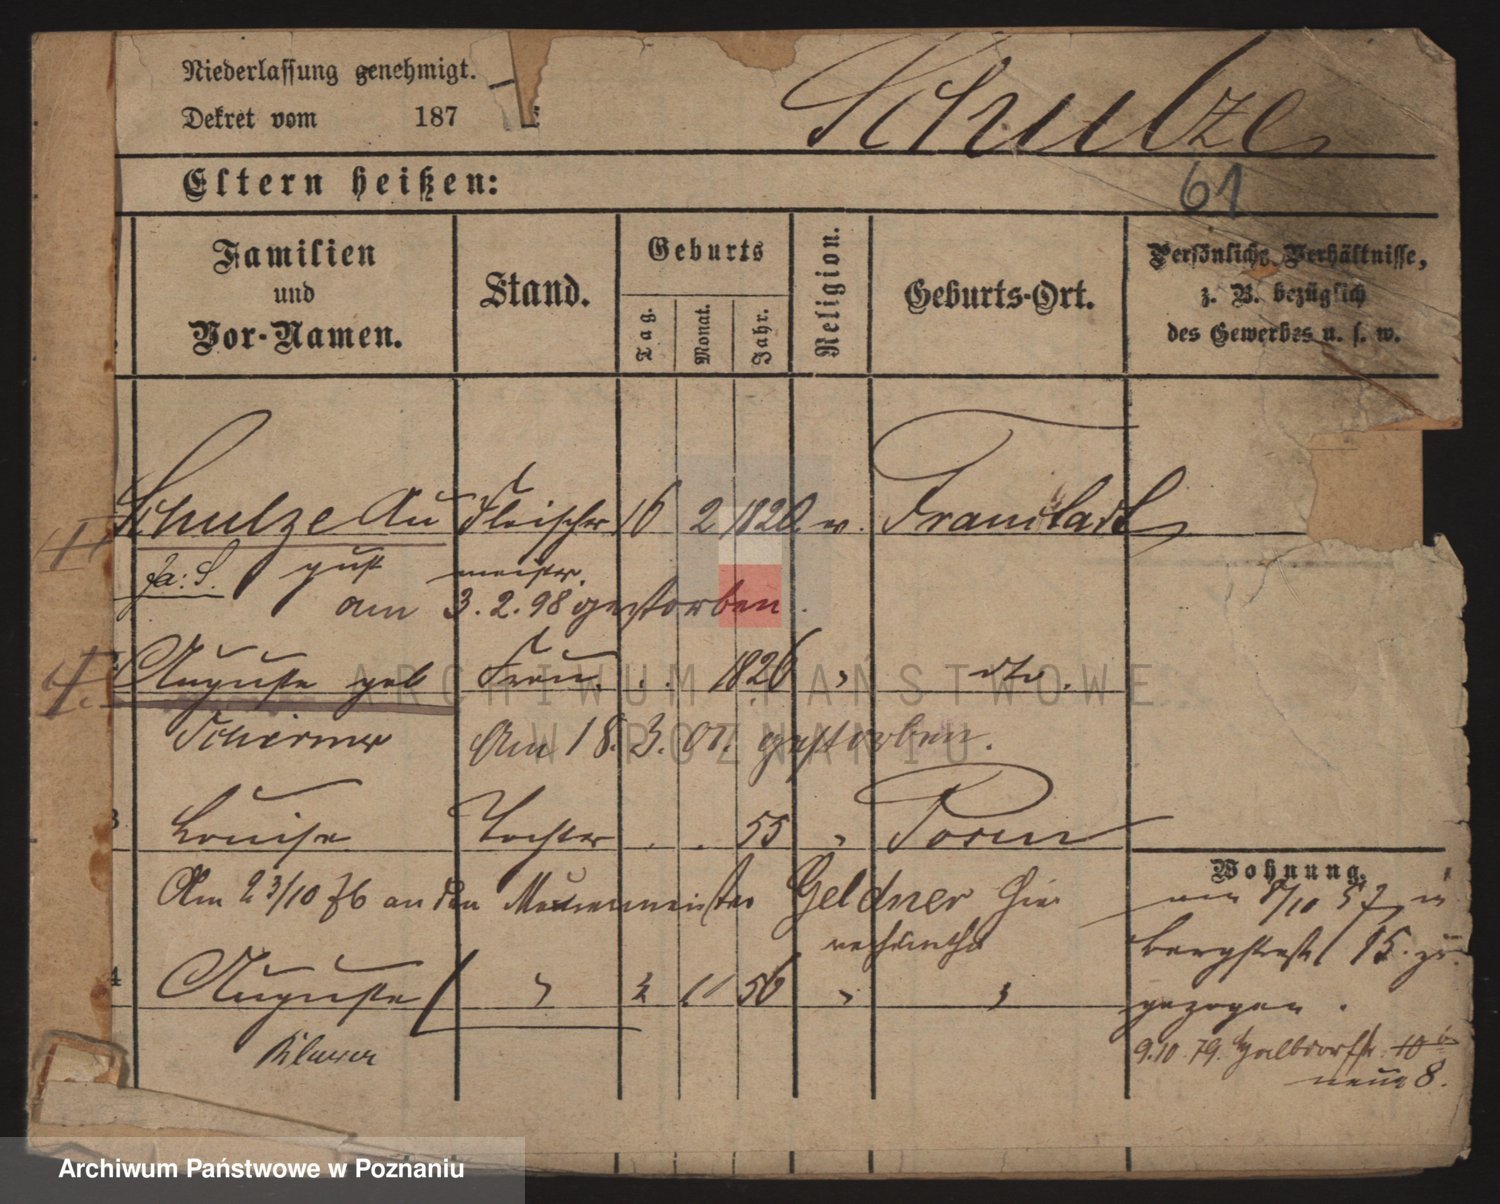 Niederlassung genehmigt.
Dekret vom 187
Schulze
61
Eltern heißen:
Familien
und
Vor-Namen.
Stand.
Geburts
Tag.
Monat.
Jahr.
Religion.
Geburts-Ort.
Persönliche Verhältnisse,
z. B. bezüglich
des Gewerbes u. s. w.
Schulze Au Fleischer 16 2 1820. ev. Fraustadt
fa: S. gust meister.
am 3.2.98 gestorben.
Auguste geb Frau. . . 1826 " dto.
Schirmer Am 18.3.01. gestorben.
3 Louise Tochter . . 55 " Posen
Am 23/10 76 an den Maurermeister Geldner hier
verheirathet
4 Auguste " 2 11 56 " "
Klauer
Wohnung.
am /10 57 in
Bergstraße 15. zu
gezogen.
9.10.79. Halbdorfstr. 10
neue 8.
ARCHIWUM PAŃSTWOWE
W POZNANIU
Archiwum Państwowe w Poznaniu